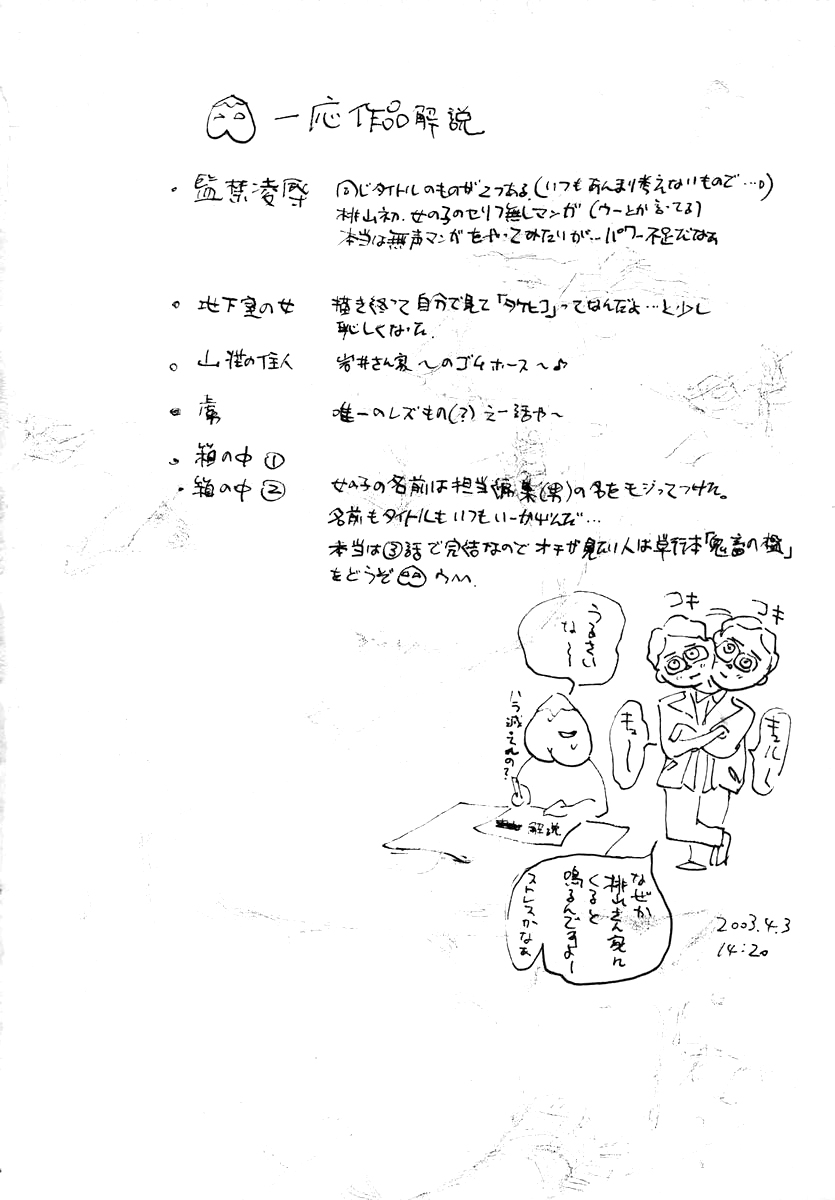 一応作品解説
・監禁凌辱
同じタイトルのものが2つある。(いつもあんまり考えないもので…。)
桃山初。女の子のセリフ無しマンガ(ウーとか言ってる)
本当は無声マンガをやってみたいが…パワー不足だなぁ
・地下室の女
描き終って自分で見て「タケヒコ」ってなんだよ…と少し
恥しくなった。
・山荘の住人
岩井さん家〜のゴムホース〜♪
・虜
唯一のレズもの(?)えー話や〜
・箱の中①
・箱の中②
女の子の名前は担当編集(男)の名をモジってつけた。
名前もタイトルもいつもいーかげんだ…
本当は③話で完結なのでオチが見たい人は単行本「鬼畜の檻」
をどうぞ
コキ
コキ
うるさい
な〜
ハラ減ってんの?
キュー
キュルル
解説
なぜか
桃山さん家に
くると
鳴るんですよー
ストレスかなぁ
2003.4.3
14:20